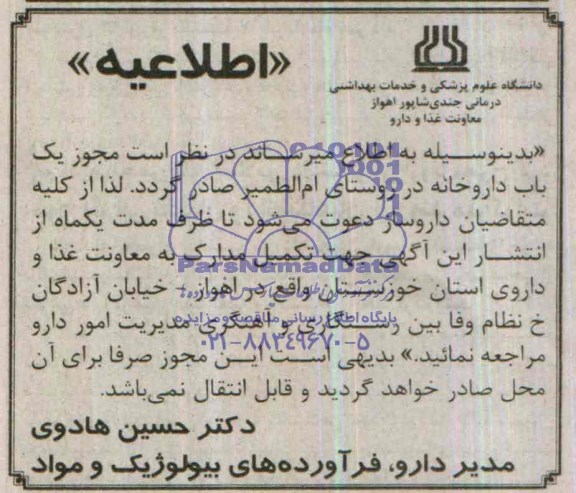 «اطلاعیه»
دانشگاه علوم پزشکی و خدمات بهداشتی
درمانی جندی‌شاپور اهواز
معاونت غذا و دارو
«بدینوسیله به اطلاع میرساند در نظر است مجوز یک
باب داروخانه در روستای ام‌الطمیر صادر گردد. لذا از کلیه
متقاضیان داروساز دعوت می‌شود تا ظرف مدت یکماه از
انتشار این آگهی جهت تکمیل مدارک به معاونت غذا و
داروی استان خوزستان واقع در اهواز - خیابان آزادگان
خ نظام وفا بین رستگاری و آهنگری مدیریت امور دارو
مراجعه نمائید.» بدیهی است این مجوز صرفا برای آن
محل صادر خواهد گردید و قابل انتقال نمی‌باشد.
دکتر حسین هادوی
مدیر دارو، فرآورده‌های بیولوژیک و مواد
ParsNamadData
پایگاه اطلاع رسانی مناقصه و مزایده
۰۲۱-۸۸۳۴۹۶۷۰-۵